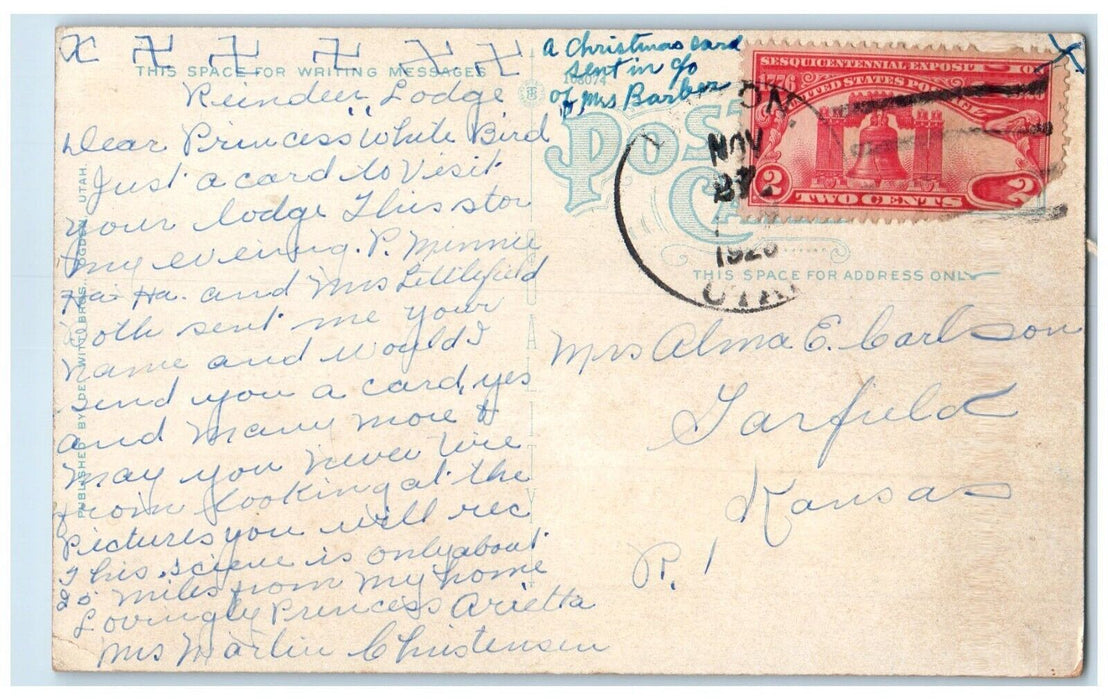 a Christmas card
sent in c/o
of Mrs Barber
THIS SPACE FOR WRITING MESSAGES
Reindeer Lodge
Dear Princess "White Bird"
Just a card to visit
your lodge This stor
my evening. P. Minnie
Ha-Ha. and Mrs Littlefield
both sent me your
name and would I
send you a card, yes
and many more &
may you never tire
from looking at the
Pictures you will rec
This scene is only about
20 miles from my home
Lovingly Princess Arietta
Mrs Marlin Christensen
PUBLISHED BY DE WITT BROS. OGDEN, UTAH.
POST
SESQUICENTENNIAL EXPOSITION
1776
UNITED STATES POSTAGE
1926
2 TWO CENTS 2
NOV
27
UTAH
THIS SPACE FOR ADDRESS ONLY
Mrs Alma E. Carlson
Garfield
Kansas
R. 1